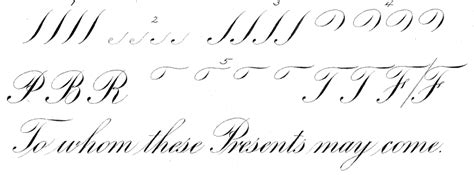 1 2 3 4
P B R 5 T T F/F
To whom these Presents may come.